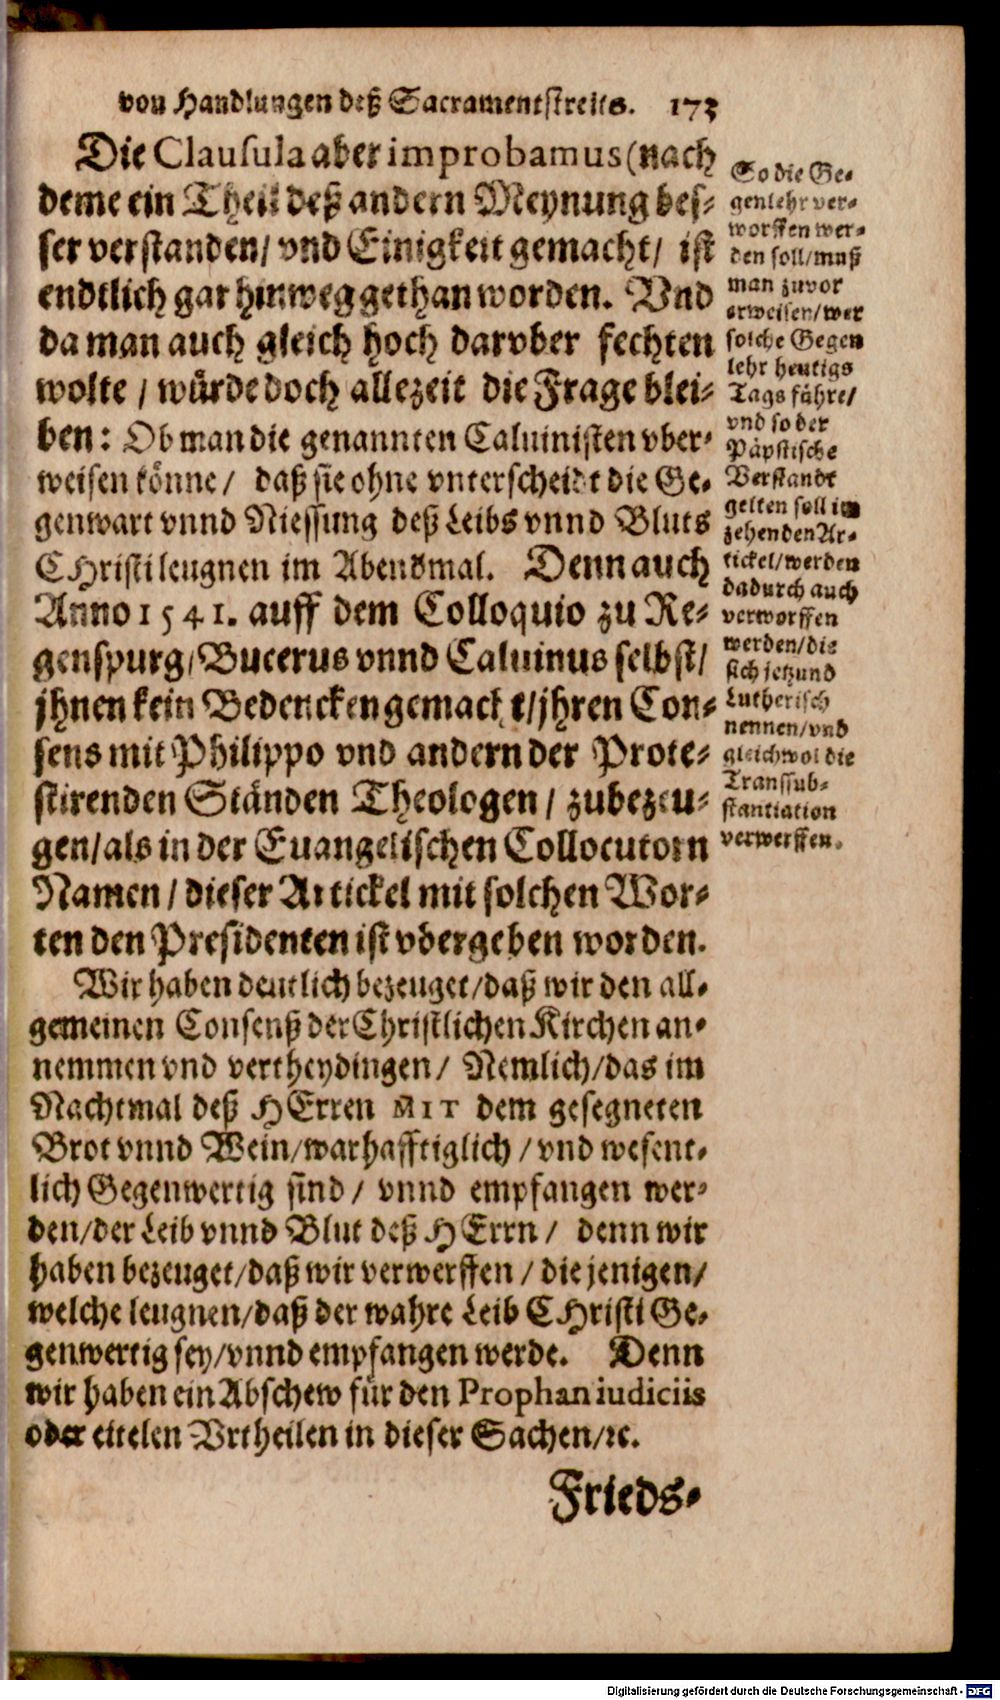 von Handlungen deß Sacramentstreits. 173
Die Clausula aber improbamus (nach
deme ein Theil deß andern Meynung bes⸗
ser verstanden/ vnd Einigkeit gemacht/ ist
endtlich gar hinweg gethan worden. Vnd
da man auch gleich hoch darvber fechten
wolte / würde doch allezeit die Frage blei⸗
ben: Ob man die genannten Caluinisten vber⸗
weisen könne/ daß sie ohne vnterscheidt die Ge⸗
genwart vnnd Niessung deß Leibs vnnd Bluts
CHristi leugnen im Abendmal. Denn auch
Anno 1541. auff dem Colloquio zu Re⸗
genspurg/ Bucerus vnnd Caluinus selbst/
jhnen kein Bedencken gemacht/ jhren Con⸗
sens mit Philippo vnd andern der Prote⸗
stirenden Ständen Theologen / zubezeu⸗
gen/ als in der Euangelischen Collocutorn
Namen / dieser Artickel mit solchen Wor⸗
ten den Presidenten ist vbergeben worden.
Wir haben deutlich bezeuget/ daß wir den all⸗
gemeinen Consenß der Christlichen Kirchen an⸗
nemmen vnd vertheydingen/ Nemlich/ das im
Nachtmal deß HErren MIT dem gesegneten
Brot vnnd Wein/ warhafftiglich / vnd wesent⸗
lich Gegenwertig sind / vnnd empfangen wer⸗
den/ der Leib vnnd Blut deß HErrn / denn wir
haben bezeuget/ daß wir verwerffen / die jenigen/
welche leugnen/ daß der wahre Leib CHristi Ge⸗
genwertig sey/ vnnd empfangen werde. Denn
wir haben ein Abschew für den Prophan iudiciis
oder eitelen Vrtheilen in dieser Sachen/ ꝛc.
Frieds⸗
So die Ge⸗
genlehr ver⸗
worffen wer⸗
den soll/ muß
man zuvor
erweisen/ wer
solche Gegen
lehr heutigs
Tags führe/
vnd so der
Päpstische
Verstandt
gelten soll im
zehenden Ar⸗
tickel/ werden
dadurch auch
verworffen
werden/ die
sich jetzund
Lutherisch
nennen/ vnd
gleichwol die
Transsub⸗
stantiation
verwerffen.
Digitalisierung gefördert durch die Deutsche Forschungsgemeinschaft - DFG